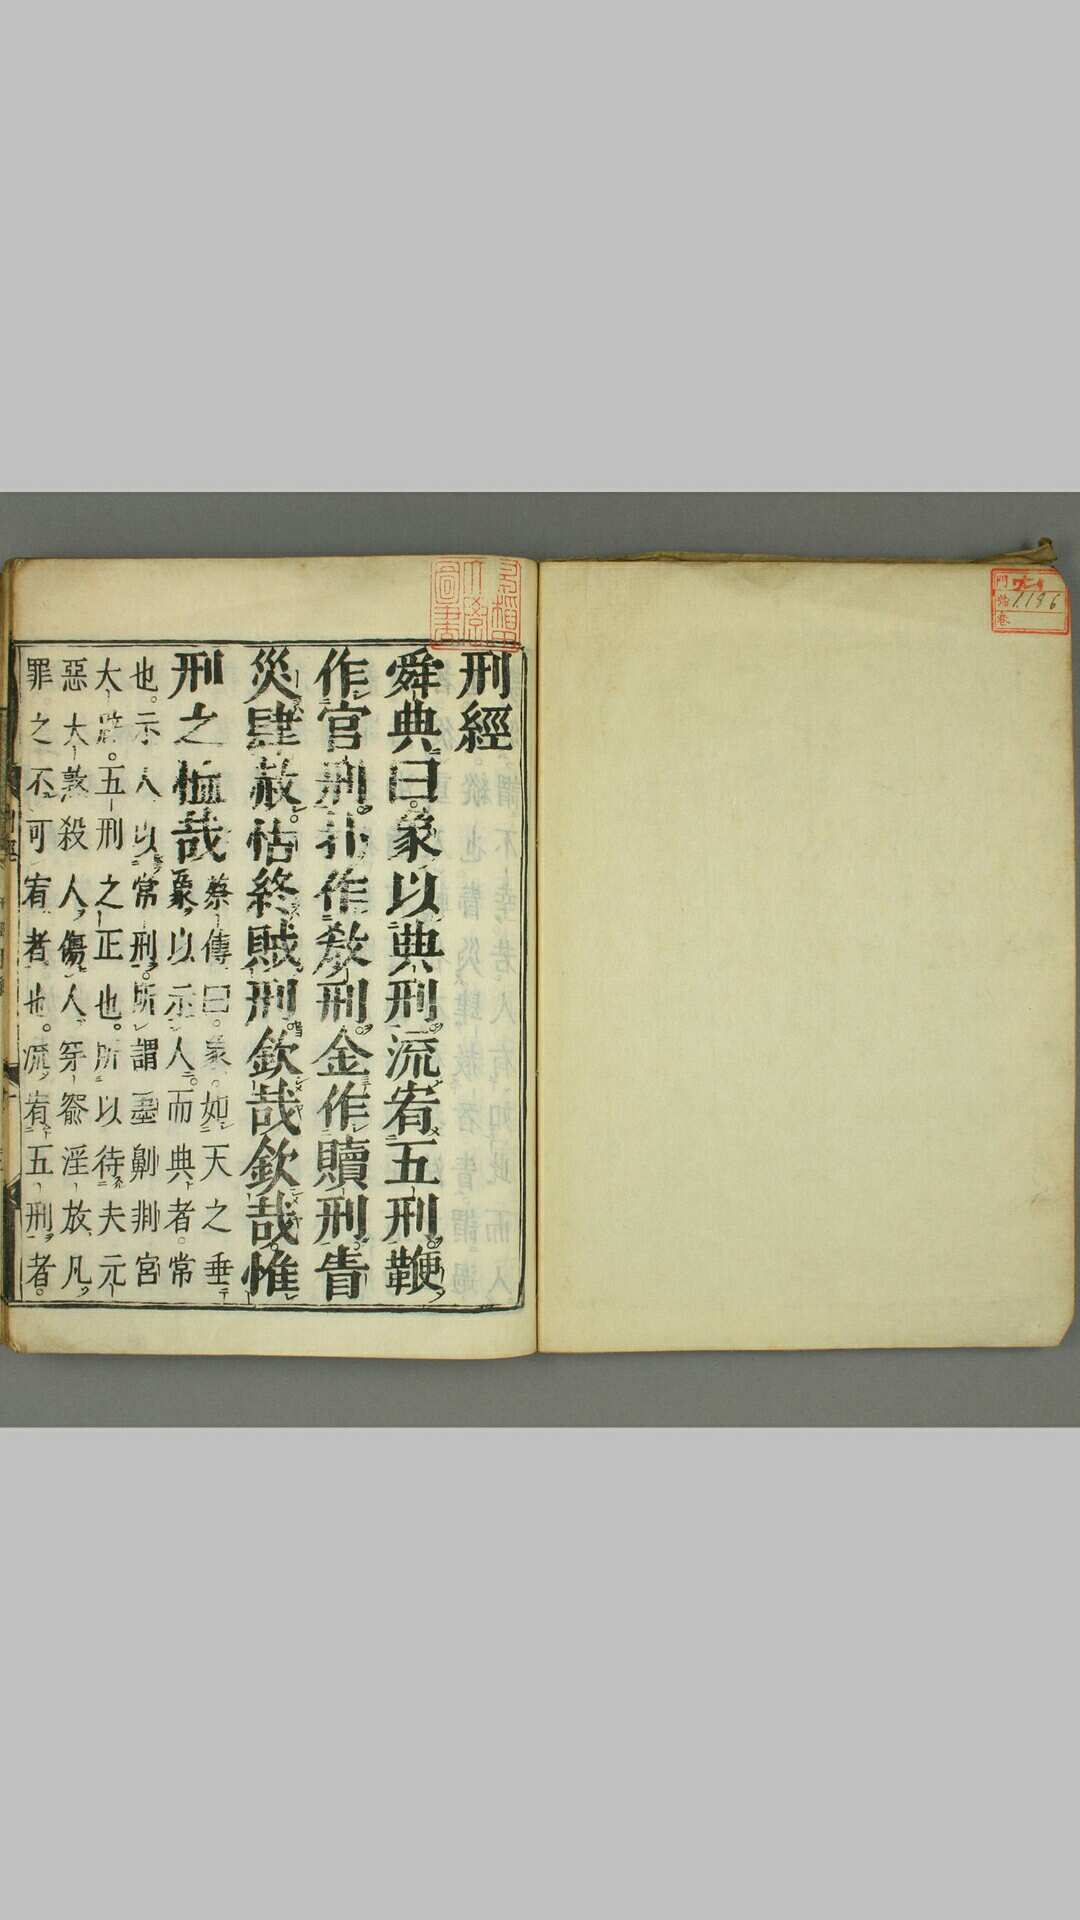 門
號 1186
卷
早稻田
大學
圖書
刑經
舜典曰。象以典刑。流宥五刑。鞭
作官刑。扑作教刑。金作贖刑。眚
災肆赦。怙終賊刑。欽哉欽哉。惟
刑之恤哉
蔡傳曰。象。如天之垂
象。以示人。而典者。常
也。示人以常刑。所謂墨劓剕宮
大辟。五刑之正也。所以待夫元
惡大憝殺人傷人穿窬淫放。凡
罪之不可宥者也。流宥五刑者。